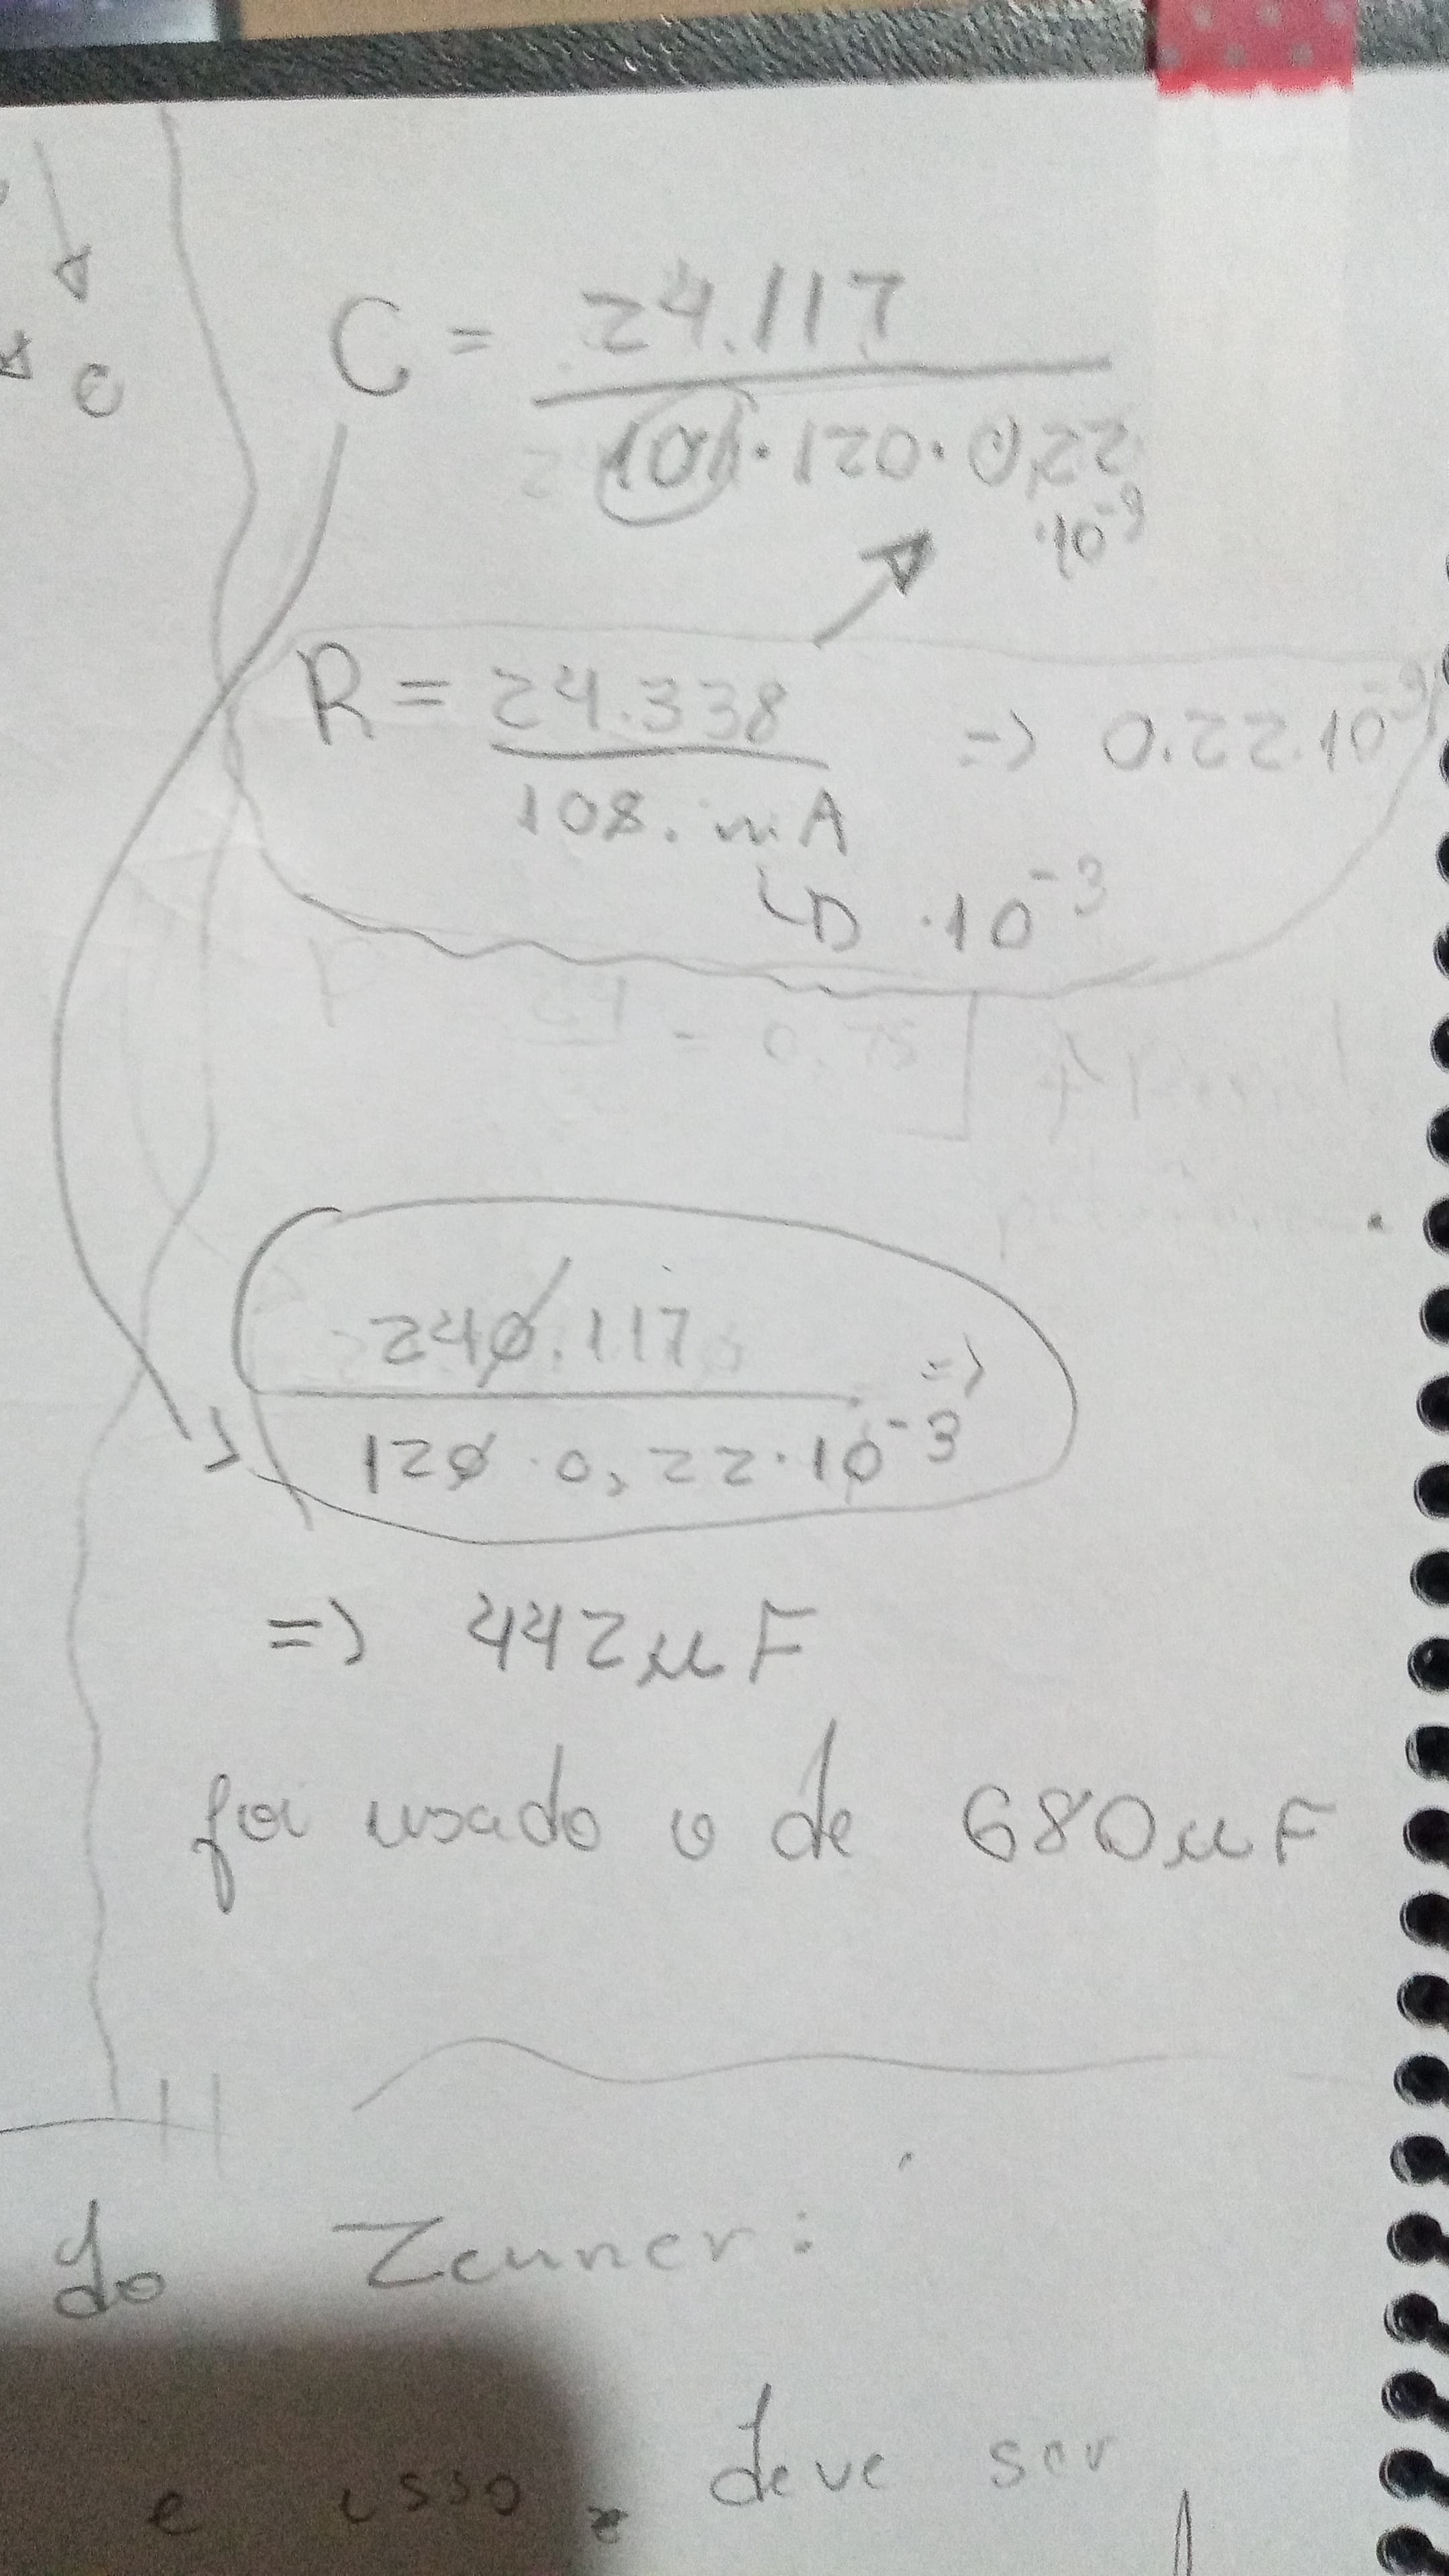 C = 24.117
101 · 120 · 0,22
·10⁻³
R = 24.338 => 0.22.10⁻³
108. mA
·10⁻³
24 = 0.75
240.117 =>
120 · 0,22 · 10⁻³
=> 442 µF
foi usado o de 680 µF
do Zenner:
e isso, deve ser